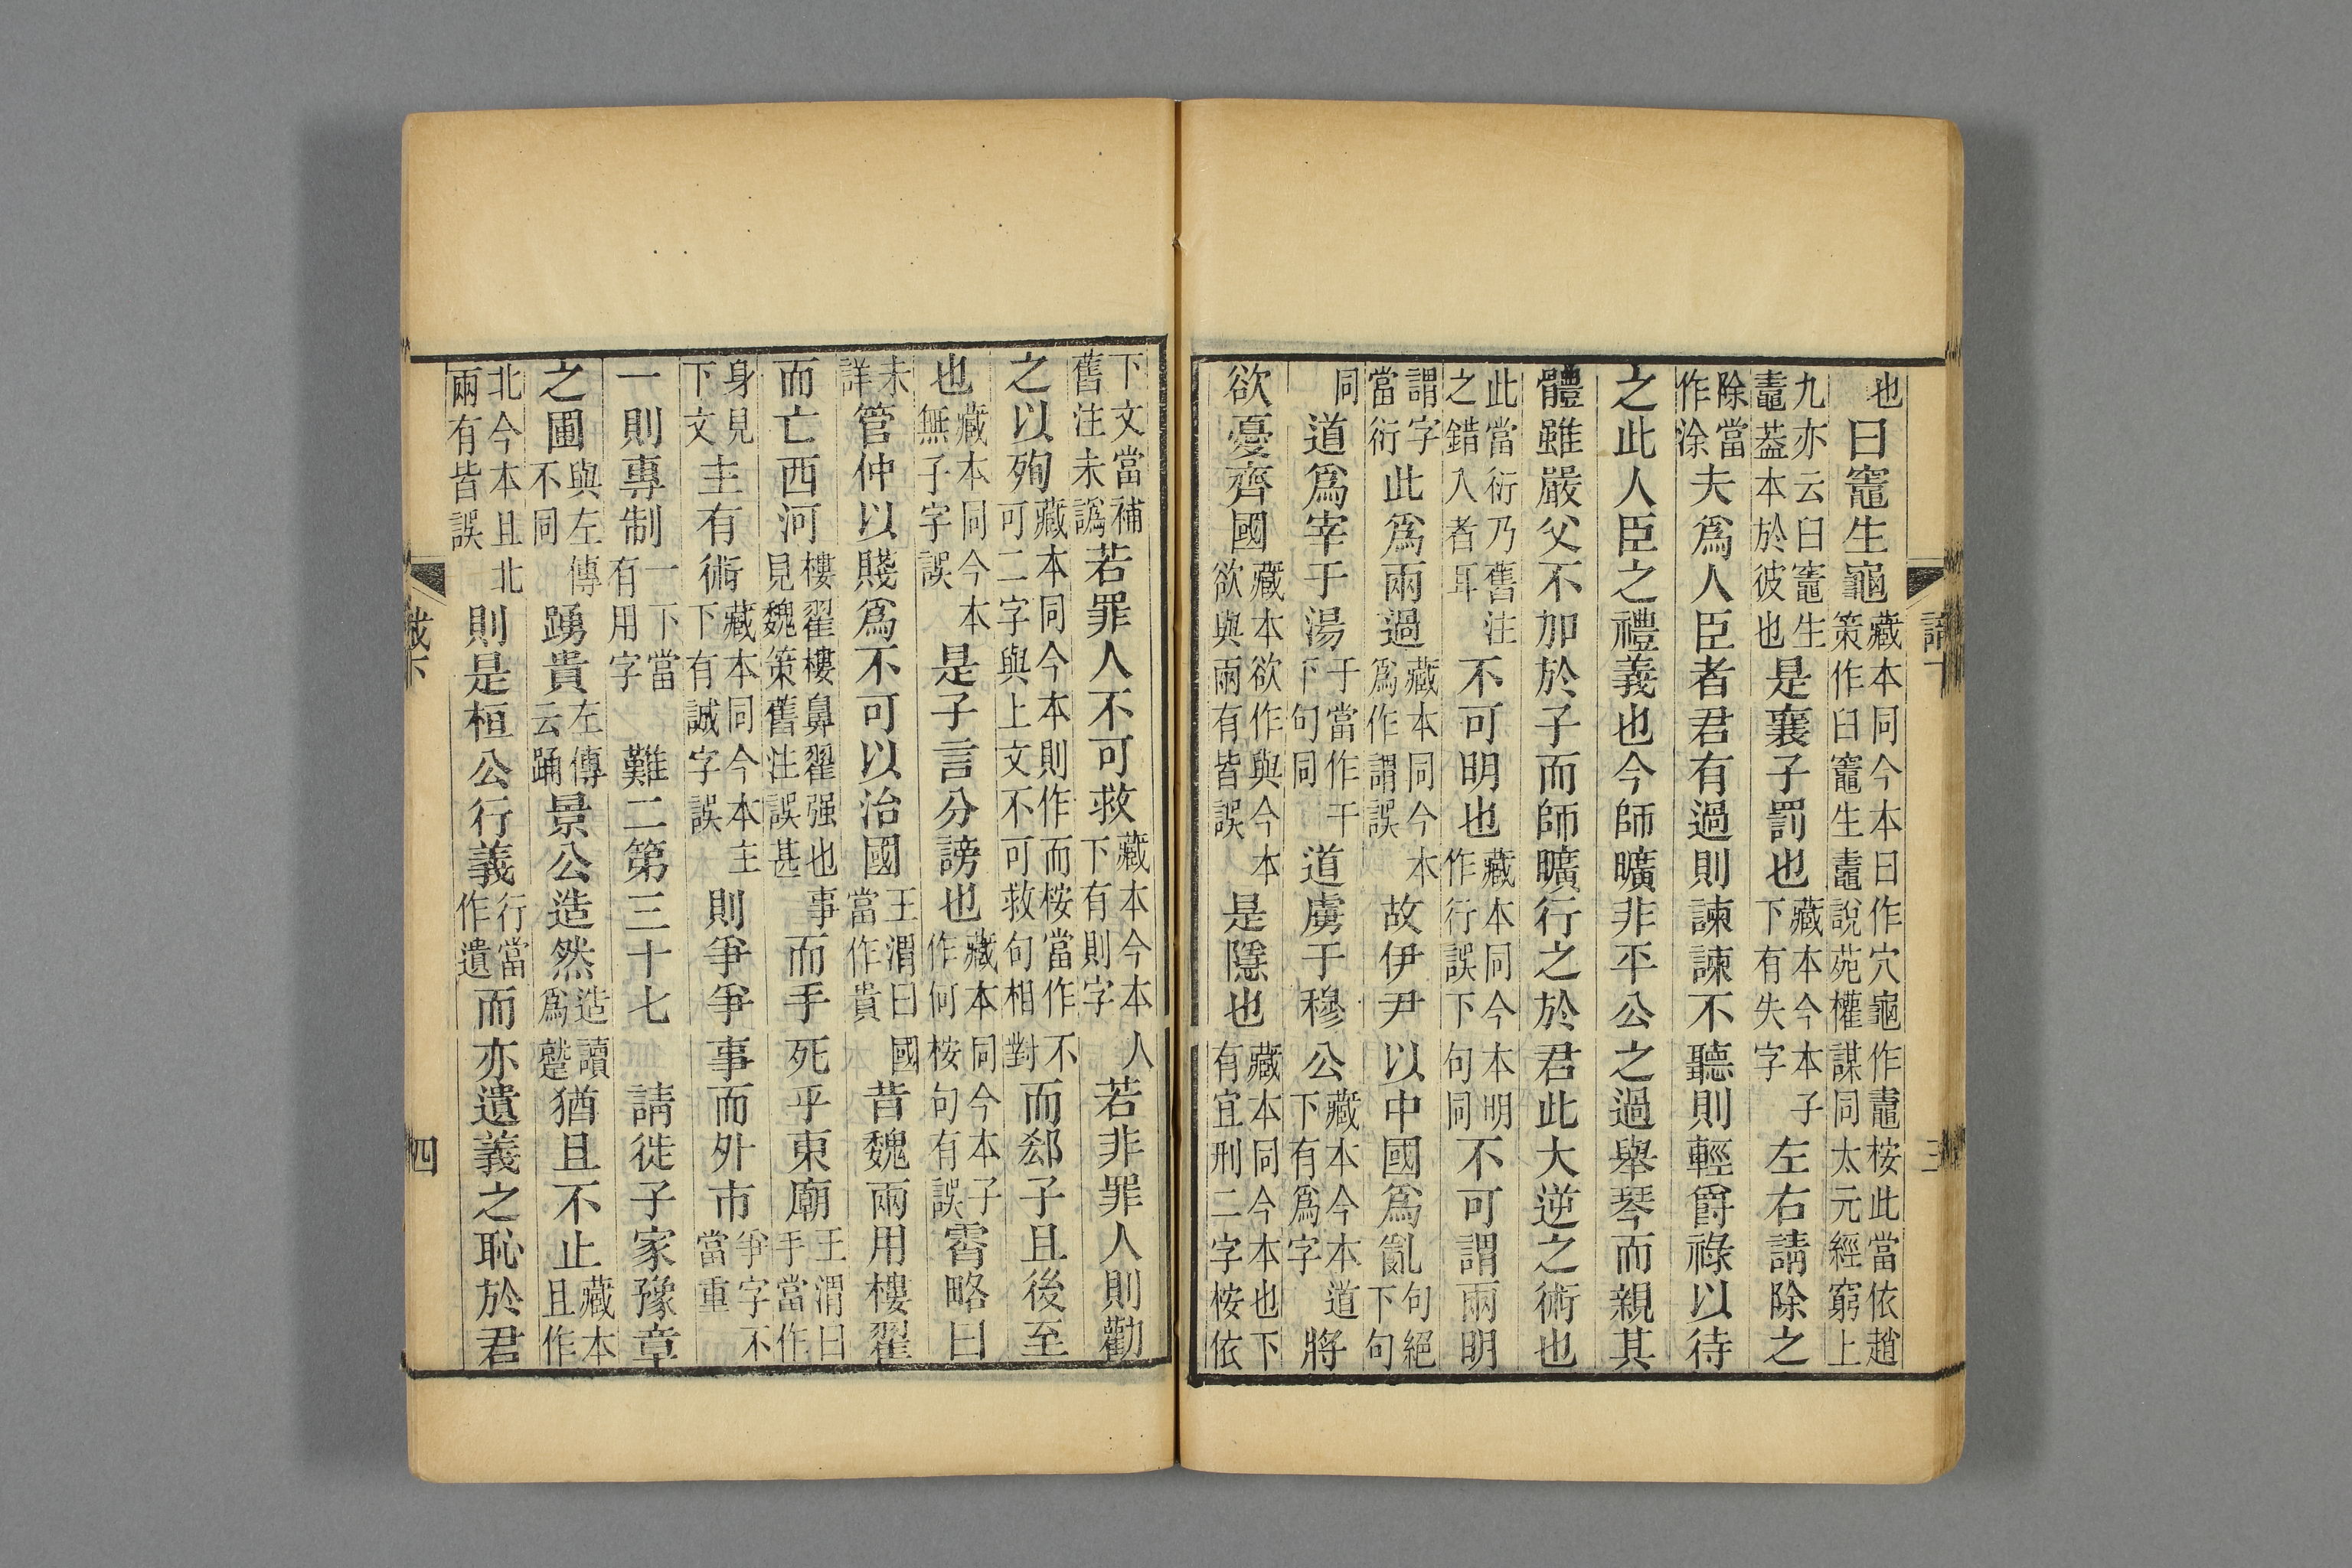 也曰竈生龜藏本同今本曰作穴龜作鼃桉此當依趙策作臼竈生鼃說苑權謀同太元經窮上
九亦云臼竈生鼃葢本於彼也是襄子罰也藏本今本子下有失字左右請除之
除當作涂夫爲人臣者君有過則諫諫不聽則輕爵祿以待
之此人臣之禮義也今師曠非平公之過舉琴而親其
體雖嚴父不加於子而師曠行之於君此大逆之術也
此當衍乃舊注之錯入者耳不可明也藏本同今本明作行誤下句同不可謂兩明
謂字當衍此爲兩過藏本同今本爲作謂誤故伊尹以中國爲亂句絕下句
同道爲宰于湯于當作干下句同道虜于穆公藏本今本道下有爲字將
欲憂齊國藏本欲作與今本欲與兩有皆誤是隱也藏本同今本也下有宜刑二字桉依
下文當補舊注未譌若罪人不可救藏本今本人下有則字若非罪人則勸
之以殉藏本同今本則作而桉當作不可二字與上文不可救句相對而郄子且後至
也藏本同今本無子字誤是子言分謗也藏本同今本子作何桉句有誤霄略曰
未詳管仲以賤爲不可以治國王渭曰國當作貴昔魏兩用樓翟
而亡西河樓翟樓鼻翟强也事見魏策舊注誤甚而手死乎東廟王渭曰手當作
身見下文主有術藏本同今本主下有誠字誤則爭爭事而外市爭字不當重
一則專制一下當有用字難二第三十七請徙子家豫章
之圃與左傳不同踴貴左傳云踊景公造然造讀爲蹵猶且不止藏本且作
北今本且北兩有皆誤則是桓公行義行當作遺而亦遺義之恥於君
四